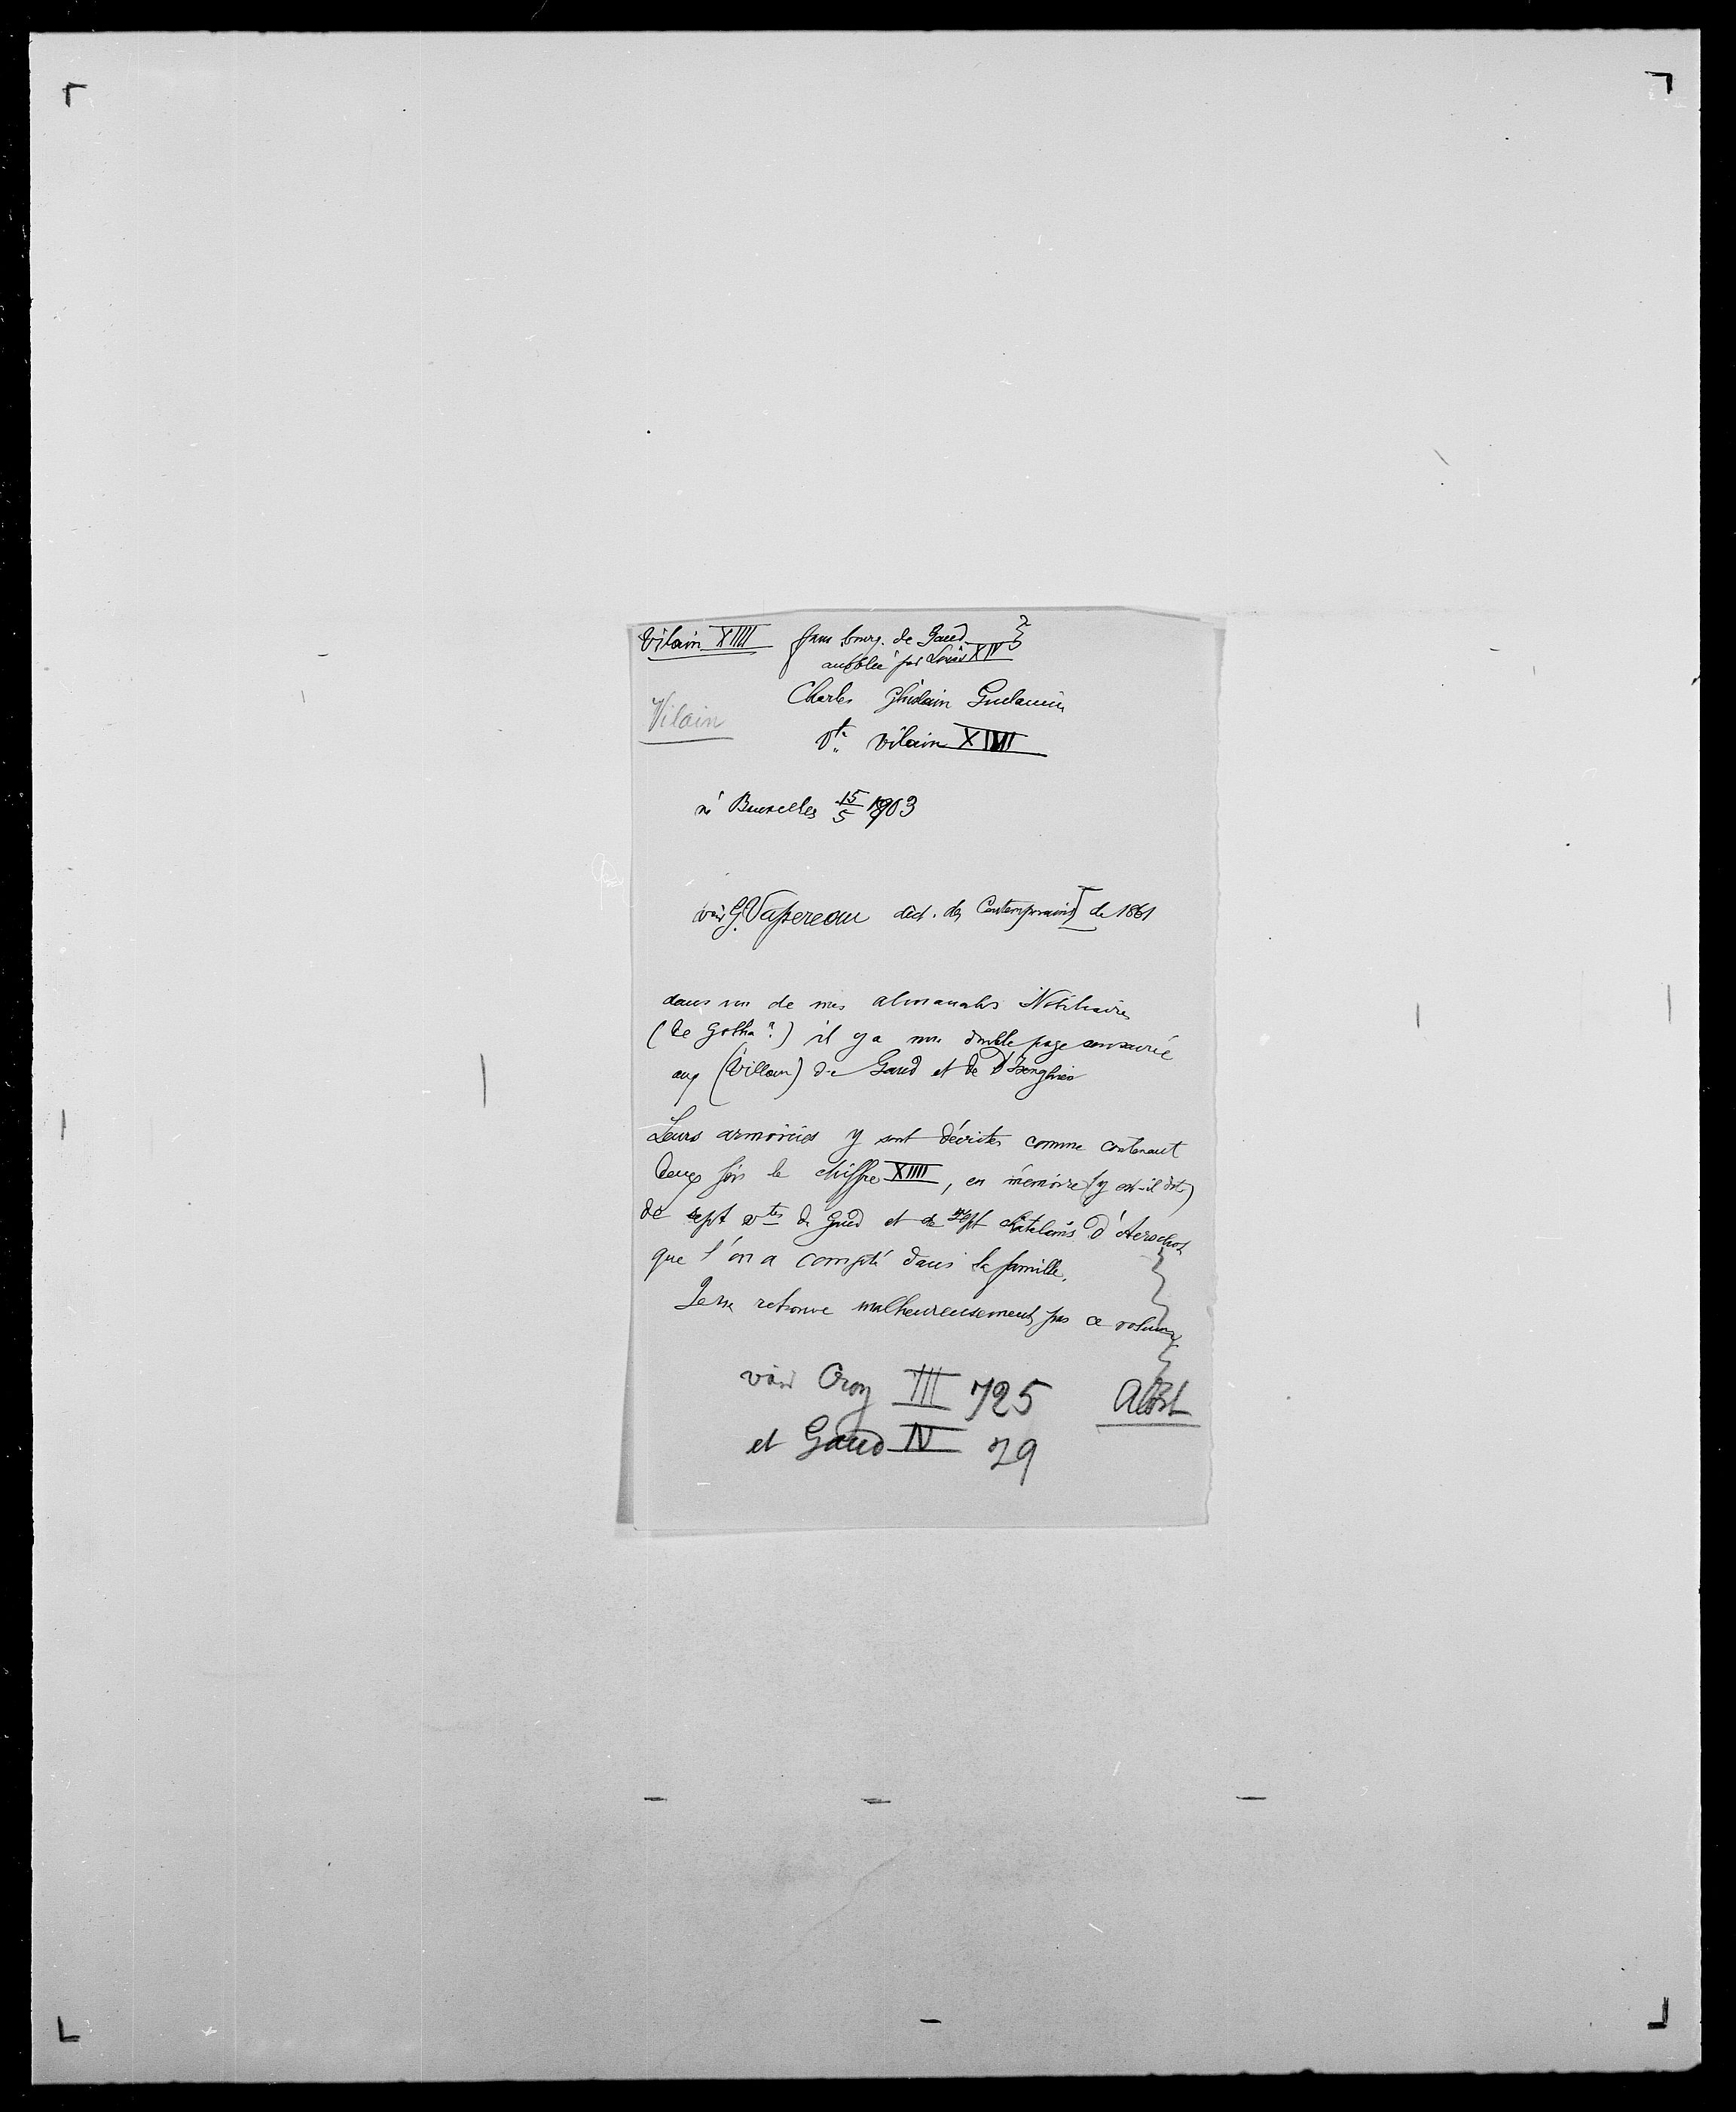 Vilain XIIII fam bourg. de Gand
anoblie par Louis XIV
Charles Ghislain Guillaume
Vilain
Vte Vilain XIIII
né Bruxelles 15/5 1803
voir G. Vapereau dict. des Contemporains de 1861
dans un de mes almanachs Nobiliaires
(de Gotha?) il y a une double page consacrée
aux (Villain) de Gand et de D'Isenghien
Leurs armoiries y sont décrites comme contenant
deux fois le chiffre XIIII, en mémoire (y est-il dit)
de sept vtes de Gand et de sept Châtelains D'Aerschot
que l'on a compté dans la famille.
Je ne retrouve malheureusement pas ce volume
voir Croy III 725 Alost
et Gand IV 79